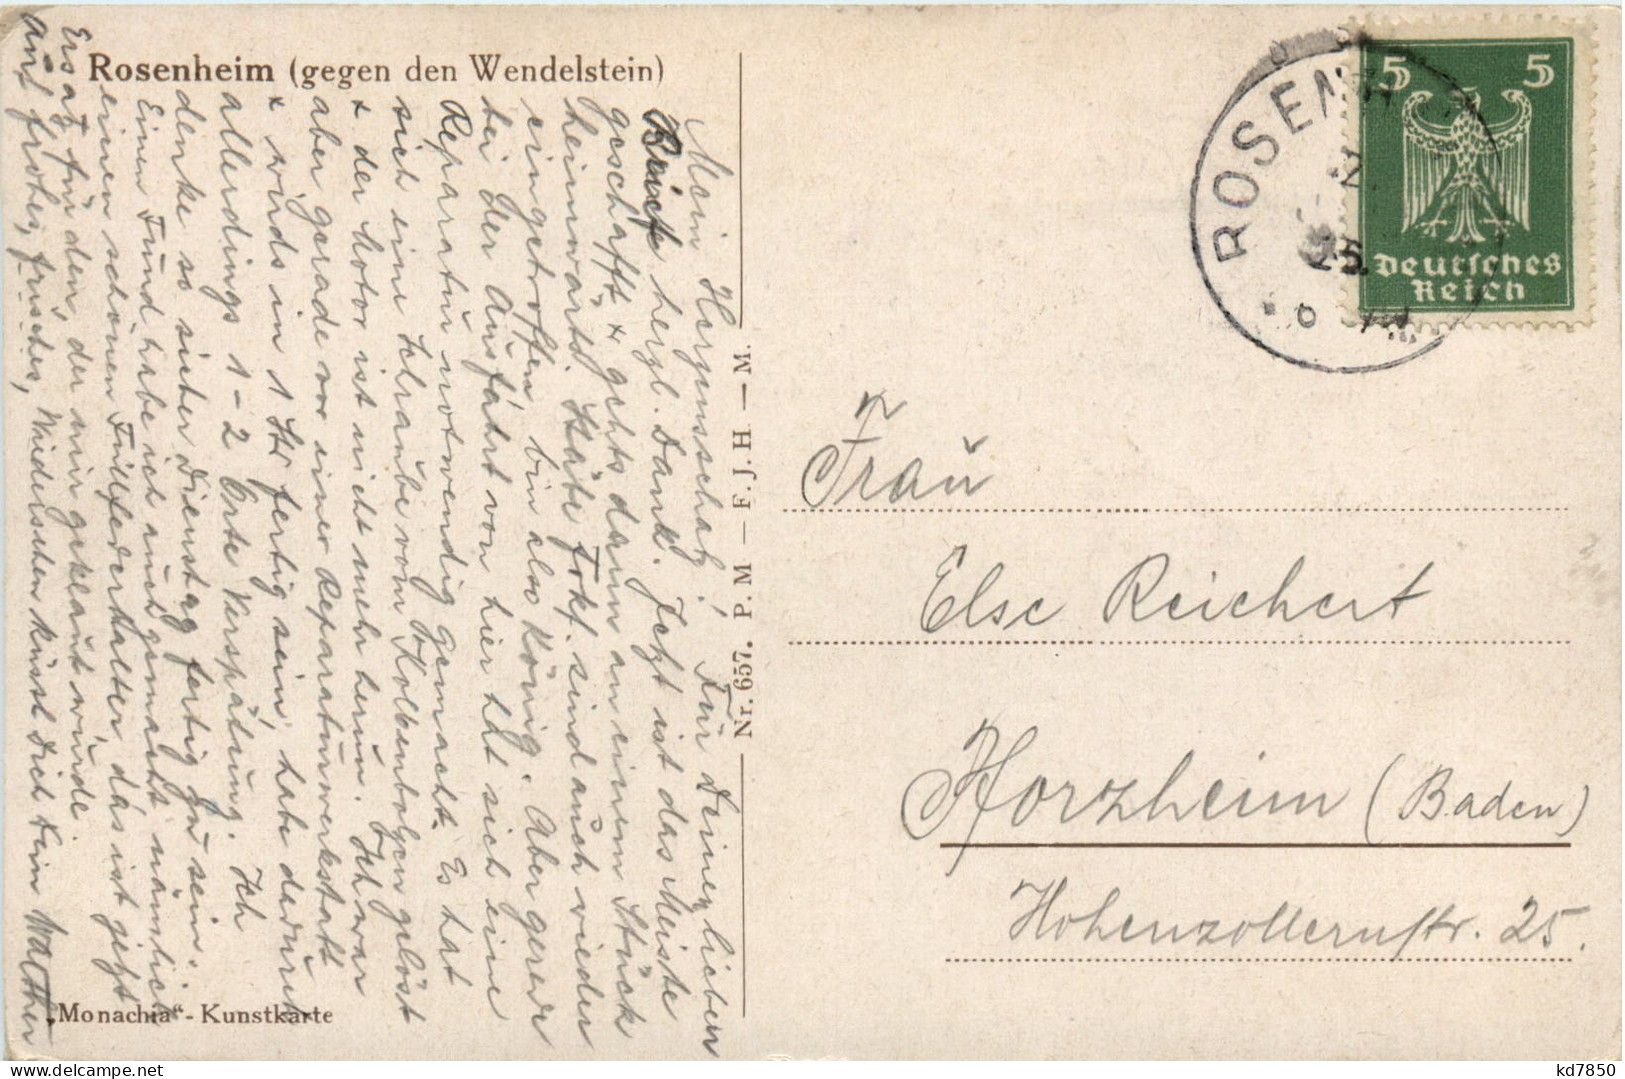 Rosenheim (gegen den Wendelstein)
Mein Herzensschatz! Für Deinen lieben
Brief herzl. Dank. Jetzt ist das Meiste
geschafft & gehts dann an einem Stück
heimwärts. Skt. sind auch wieder
eingetroffen, bin also König. Aber gerade
bei der Ausfahrt von hier hat sich eine
Reparatur notwendig gemacht. Es hat
sich eine Schraube vom Kolbenbolzen gelöst
& der Motor ist nicht mehr herum. Ich war
aber gerade vor einer Reparaturwerkstatt
& wirds in 1 Std fertig sein, habe dadurch
allerdings 1-2 Orte Verspätung. Ich
denke so sicher Dienstag fertig zu sein.
Einen Fund habe ich auch gemacht nämlich
einen schönen Füllfederhalter, das ist jetzt
Ersatz für den, der mir geklaut wurde.
Auf frohes, frisches, Wiedersehen küsst Dich Dein Walther
„Monachia"-Kunstkarte
Nr. 657. P. M. — F. J. H. — M.
ROSENH
25.
5 5
Deutsches
Reich
Frau
Else Reichert
Pforzheim (Baden)
Hohenzollernstr. 25.
kd7850